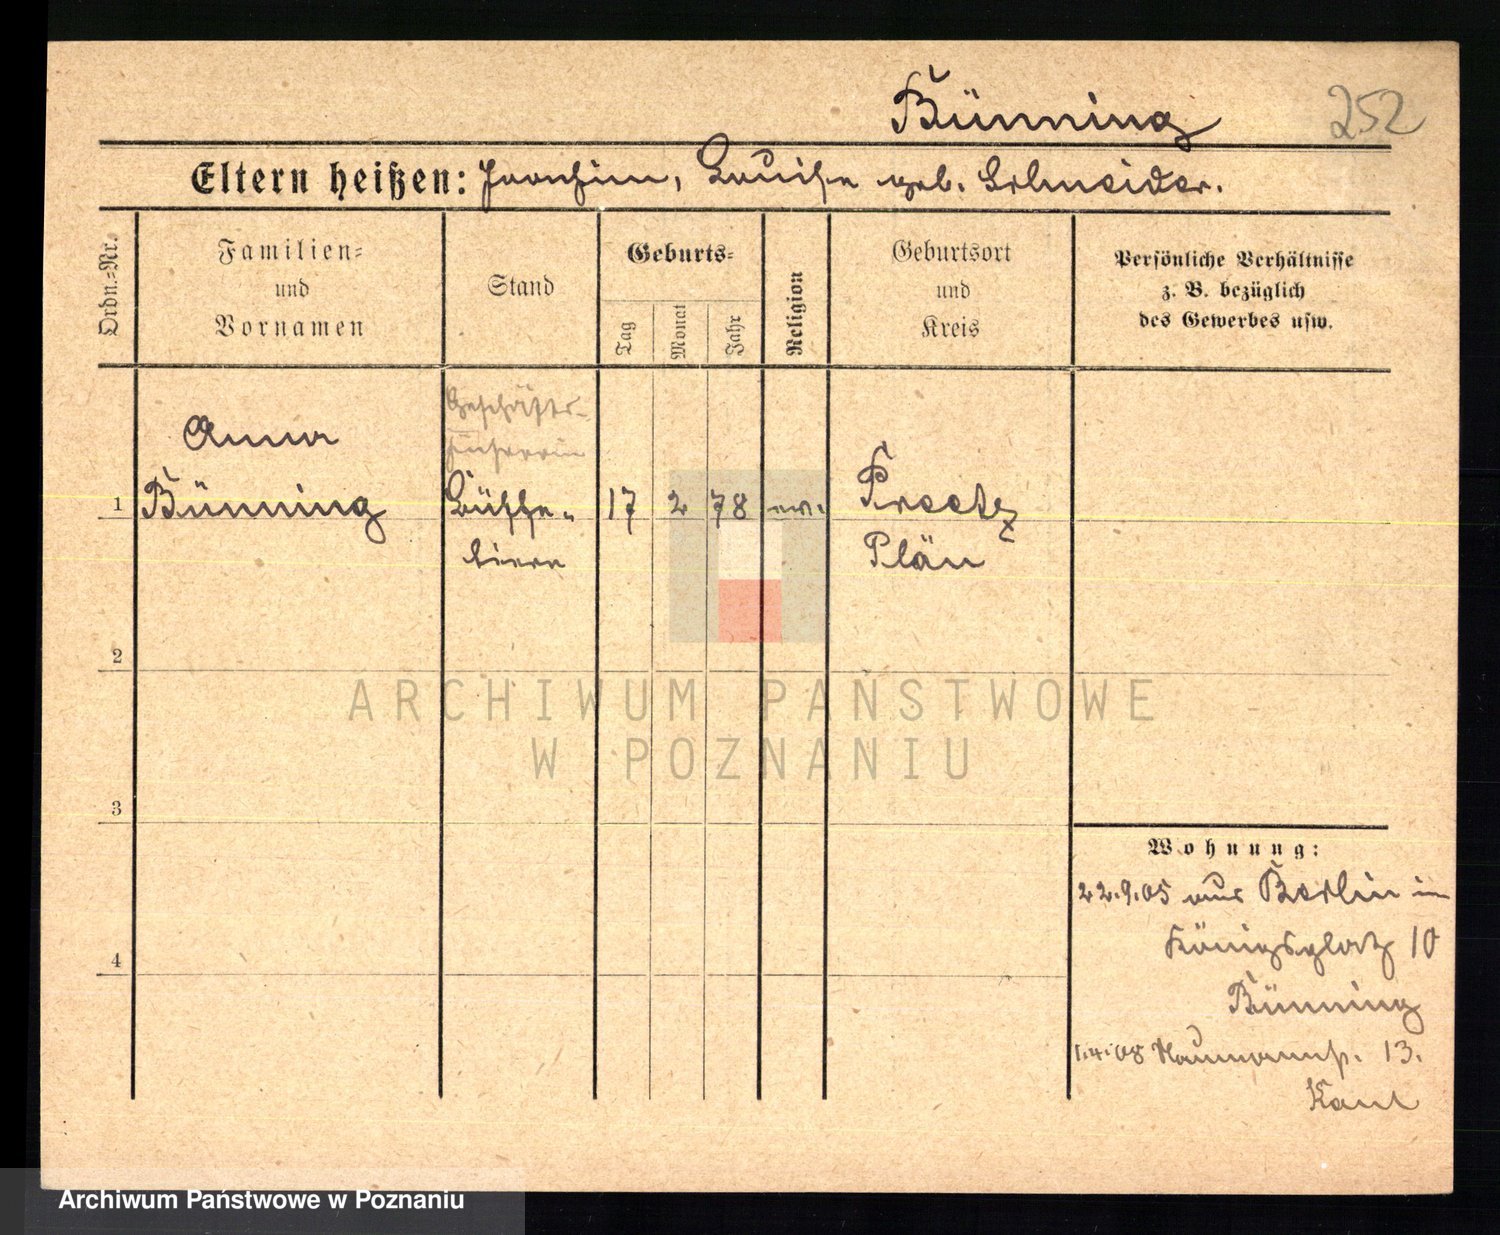 Bünning
252
Eltern heißen: Joachim, Louise geb. Schneider.
Ordn.-Nr.
Familien-
und
Vornamen
Stand
Geburts-
Tag
Monat
Jahr
Religion
Geburtsort
und
Kreis
Persönliche Verhältnisse
z. B. bezüglich
des Gewerbes usw.
Geschäfts-
führerin
Anna
1 Bünning 17 2 78 ev. Preetz
Plön
2
3
4
ARCHIWUM PAŃSTWOWE
W POZNANIU
Wohnung:
22.9.05 aus Berlin in
Königsplatz 10
Bünning
1.4.08 Naumannstr. 13.
Archiwum Państwowe w Poznaniu